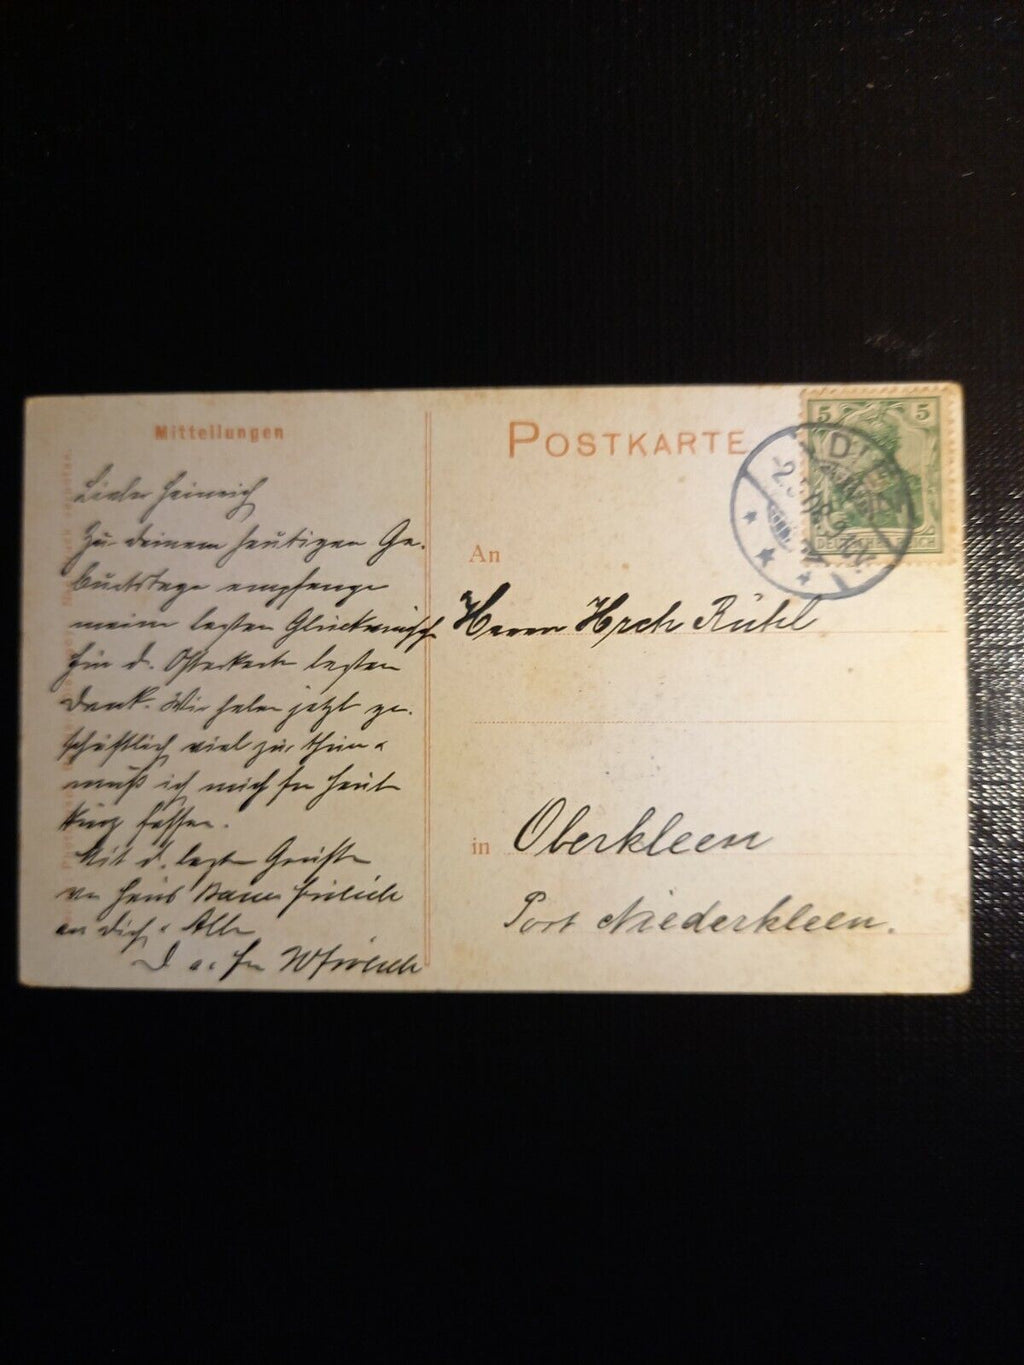 Mitteilungen
Lieber Heinrich
Zu Deinem heutigen Ge-
burtstage empfange
meine besten Glückwünsche
Für d. Osterkarte besten
Dank. Wir haben jetzt ge-
schäftlich viel zu thun
muß ich mich für heute
kurz fassen.
Mit d. besten Grüßen
von Haus
an Dich u. Alle
D.
POSTKARTE
5 5
DEUTSCHES REICH
An
Herrn Hrch Rühl
in Oberkleen
Post Niederkleen.